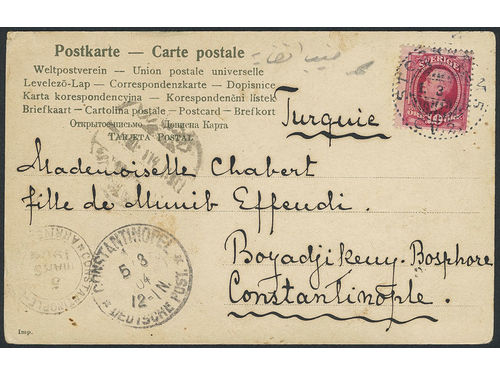 Postkarte – Carte postale
Weltpostverein – Union postale universelle
Levelező-Lap – Correspondenzkarte – Dopisnice
Karta korespondencyjna – Korespondenční lístek
Briefkaart – Cartolina postale – Postcard – Brefkort
Открытое письмо – Дописна Карта
TARJETA POSTAL
SVERIGE
10
Turquie
Mademoiselle Chabert
fille de Munib Effendi.
Boyadjikeuy-Bosphore
Constantinople.
CONSTANTINOPEL
5 3
04
12-N
* DEUTSCHE POST. *
5
MARS
Imp.